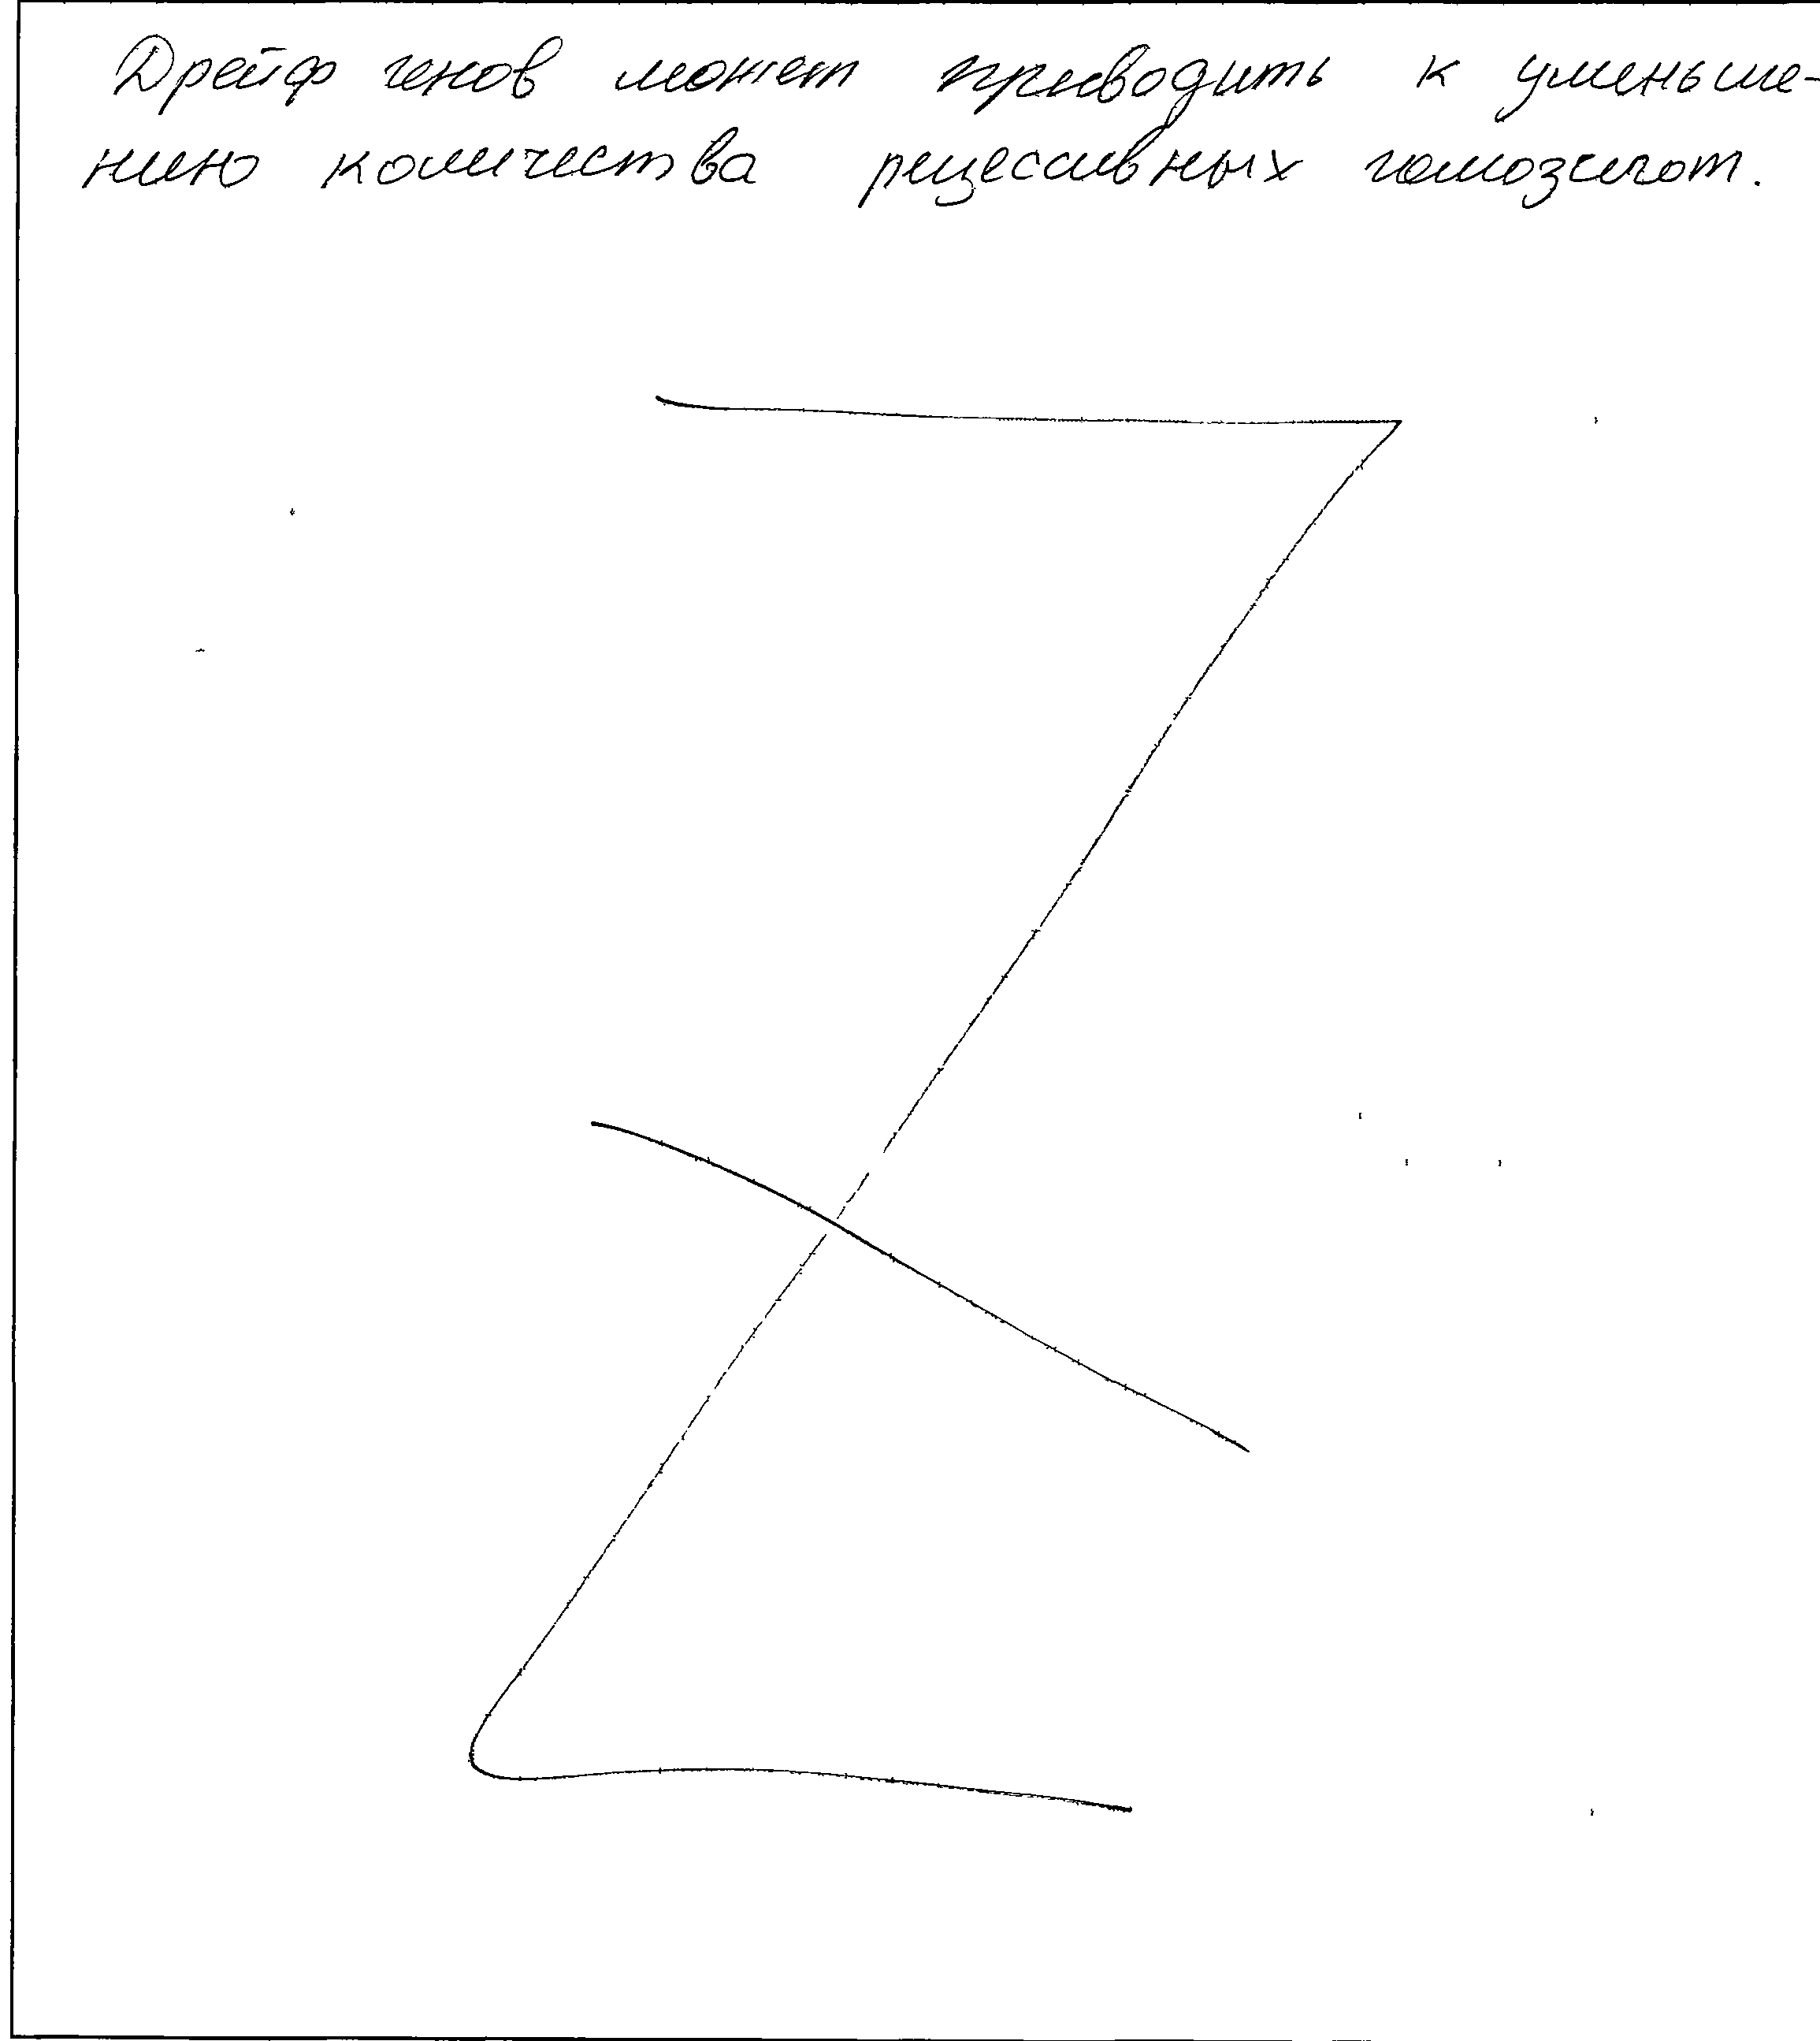 Дрейф генов может приводить к уменьше-
нию количества рецессивных гомозигот.